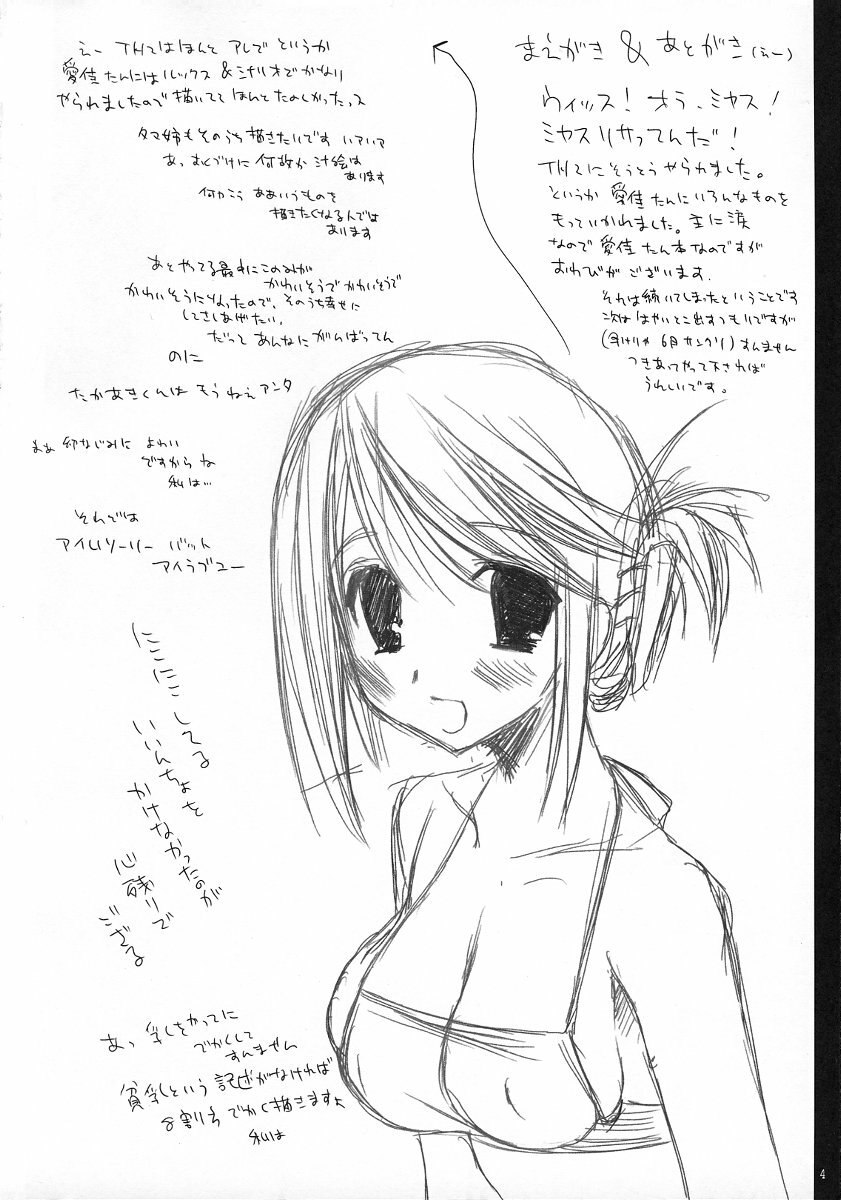 まえがき & あとがき(えー)
ウィッス! オラ、ミヤス!
ミヤスリサってんだ!
TH2にそうとうやられました。
というか 愛佳たんにいろんなものを
もっていかれました。主に涙
なので 愛佳たん本なのですが
おわびが ございます.
それは続いてしまったということです
次は はやいとこ出すつもりですが
6月 サンクリ) すんません
つきあってやって下されば
うれしいです。
えー TH2はほんと アレで というか
愛佳たんにはルックス & シナリオでかなり
やられましたので 描いてて ほんとたのしかったっス
タマ姉もそのうち描きたいです いアいア
あっ むくづけに 何枚か 汁絵は
あります
何かこう ああいうものを
描きたくなるんでは
あります
あとやってる最中にこのみが
かわいそうで かわいそうで
かわいそうになったので、そのうち幸せに
してさしあげたい。
だって あんなに がんばってん
のに
たかあきくんは もうねえ アンタ
まぁ 幼なじみに よわい
ですからね
私は…
それでは
アイムソーリー バット
アイラブユー
にこにこしてる
いいんちょを
かけなかったのが
心残りで
ござる
あっ 乳をかってに
でかくして
すんません
貧乳という 記述がなければ
8割り でかく描きますよ
私は
4